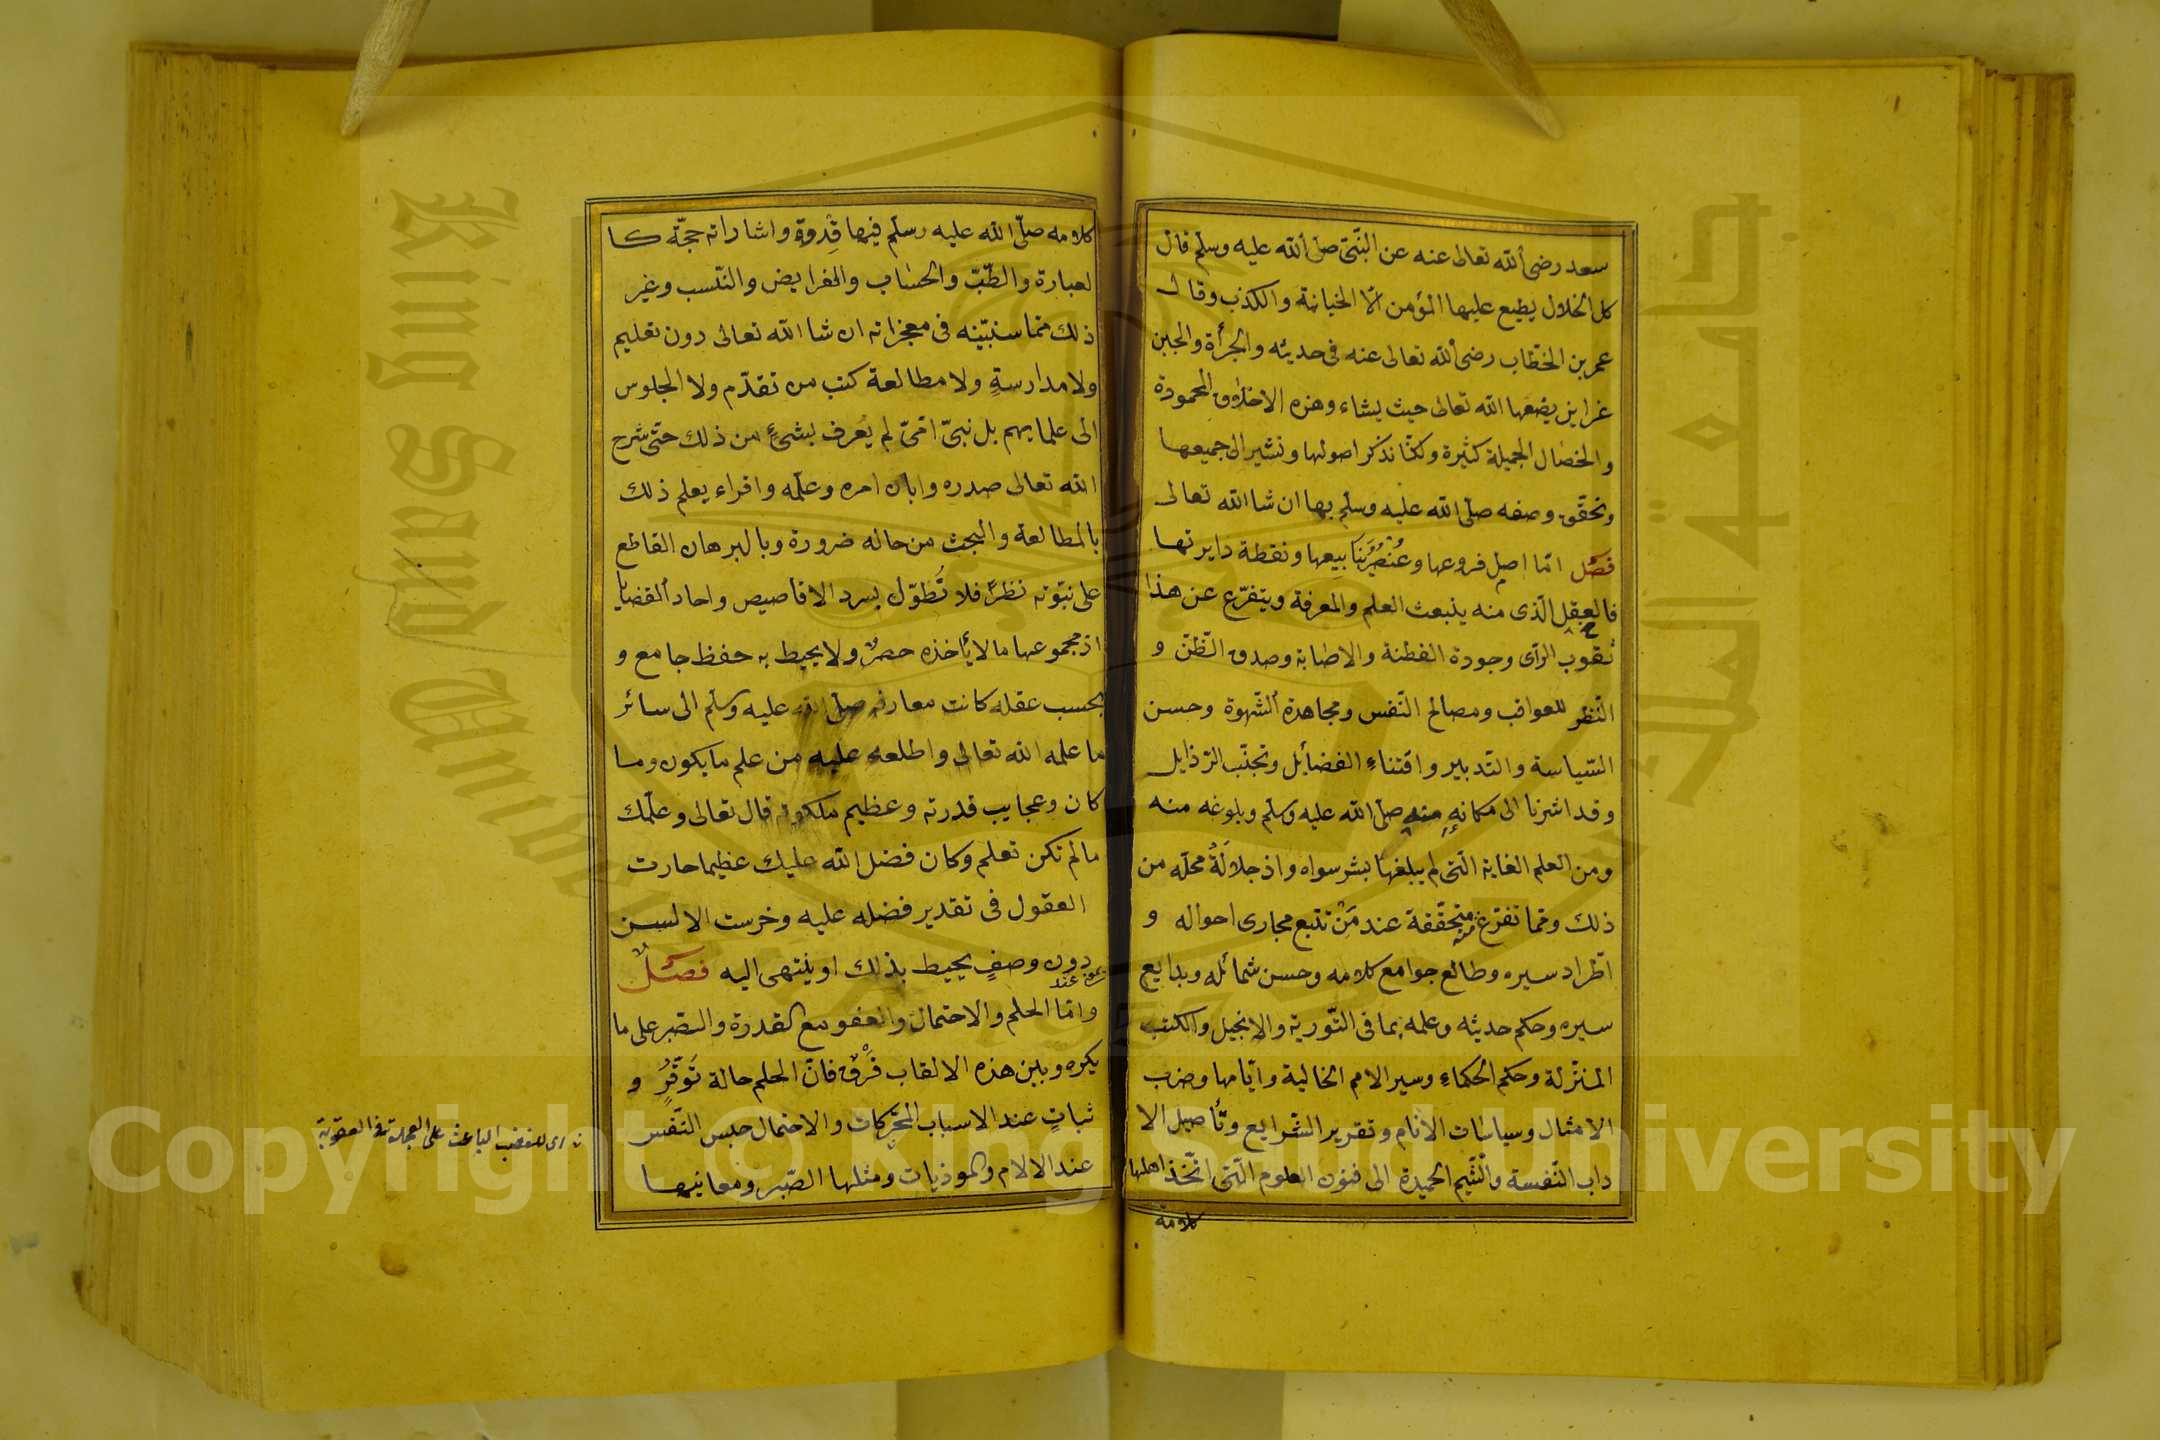 سعد رضى الله تعالى عنه عن النّبىّ صلّى الله عليه وسلّم قال
كل الخلال يطبع عليها المؤمن الّا الخيانة والكذب وقال
عمر بن الخطّاب رضى الله تعالى عنه فى حديثه والجرأة والجبن
غرايز يضعها الله تعالى حيث يشاء وهذه الاخلاق المحمودة
والخصال الجميلة كثيرة ولكنّا نذكر اصولها ونشير الى جميعها
ونحقّق وصفه صلّى الله عليه وسلّم بها ان شا الله تعالى
فصل امّا اصل فروعها وعُنْصُرُ يَنَابيعها ونقطة دايرتها
فالعقل الّذى منه ينبعث العلم والمعرفة ويتفرّع عن هذا
ثقوب الرّأى وجودة الفطنة والاصابة وصدق الظّنّ و
النّظر للعواقب ومصالح النّفس ومجاهدة الشّهوة وحسن
السّياسة والتّدبير واقتناءِ الفضائل وتجنّب الرّذايل
وقد اشرنا الى مكانه منه صلّى الله عليه وسلّم وبلوغه منه
ومن العلم الغاية الّتى لم يبلغها بشر سواه واذ جلالَةُ محلّه من
ذلك وممّا تفرّع منه متحقّقة عند مَنْ تتبع مجارى احواله و
اطّراد سيره وطالع جوامع كلامه وحسن شمائله وبدايع
سيره وحكم حديثه وعلمه بما فى التّورية والانجيل والكتب
المنزّلة وحكم الحكماءِ وسير الامم الخالية وايّامها وضرب
الامثال وسياسات الانام وتقرير الشّرايع وتأصيل الا
داب النّفسة والشّيم الحميدة الى فنون العلوم الّتى اتّخذ اهلها
كلامه
كلامه صلّى الله عليه وسلّم فيها قِدْوةً واشاراته حجّة كا
لعبارة والطّبّ والحساب والفرايض والنّسب وغير
ذلك ممّا سنبيّنه فى معجزاته ان شا الله تعالى دون تعليم
ولا مدارسةٍ ولا مطالعة كتب من تقدّم ولا الجلوس
الى علمايهم بل نبىّ امّىّ لم يُعرف بشىءٍ من ذلك حتّى شرح
الله تعالى صدره وابان امره وعلّمه واقراء يعلم ذلك
بالمطالعة والبحث من حاله ضرورة وبالبرهان القاطع
على نبوّته نظرًا فلا نُطوّل بسرد الاقاصيص واحاد القضايا
اذ مجموعها ما لا يأخذه حصرٌ ولا يحيط به حفظ جامع و
بحسب عقله كانت معارفه صلّى الله عليه وسلّم الى سائر
ما علمه الله تعالى واطلعه عليه من علم ما يكون وما
كان وعجايب قدرته وعظيم ملكوته قال تعالى وعلّمك
ما لم تكن تعلم وكان فضل الله عليك عظيما حارت
العقول فى تقدير فضله عليه وخرست الالسن
دون وصفٍ يحيط بذلك او ينتهى اليه فصلٌ
وامّا الحلم والاحتمال والعفو مع القدرة والصّبر على ما
يكره وبين هذه الالقاب فَرْقٌ فانّ الحلم حالة تَوَقّرٍ و
ثباتٍ عند الاسباب المحرّكات والاحتمال حبس النّفس
عند الالام والموذيات ومثلها الصّبر ومعانيها
اى للغضب الباعث على العجلة فى العقوبة
King Saud University
1957
جامعة الملك سعود
Copyright © King Saud University